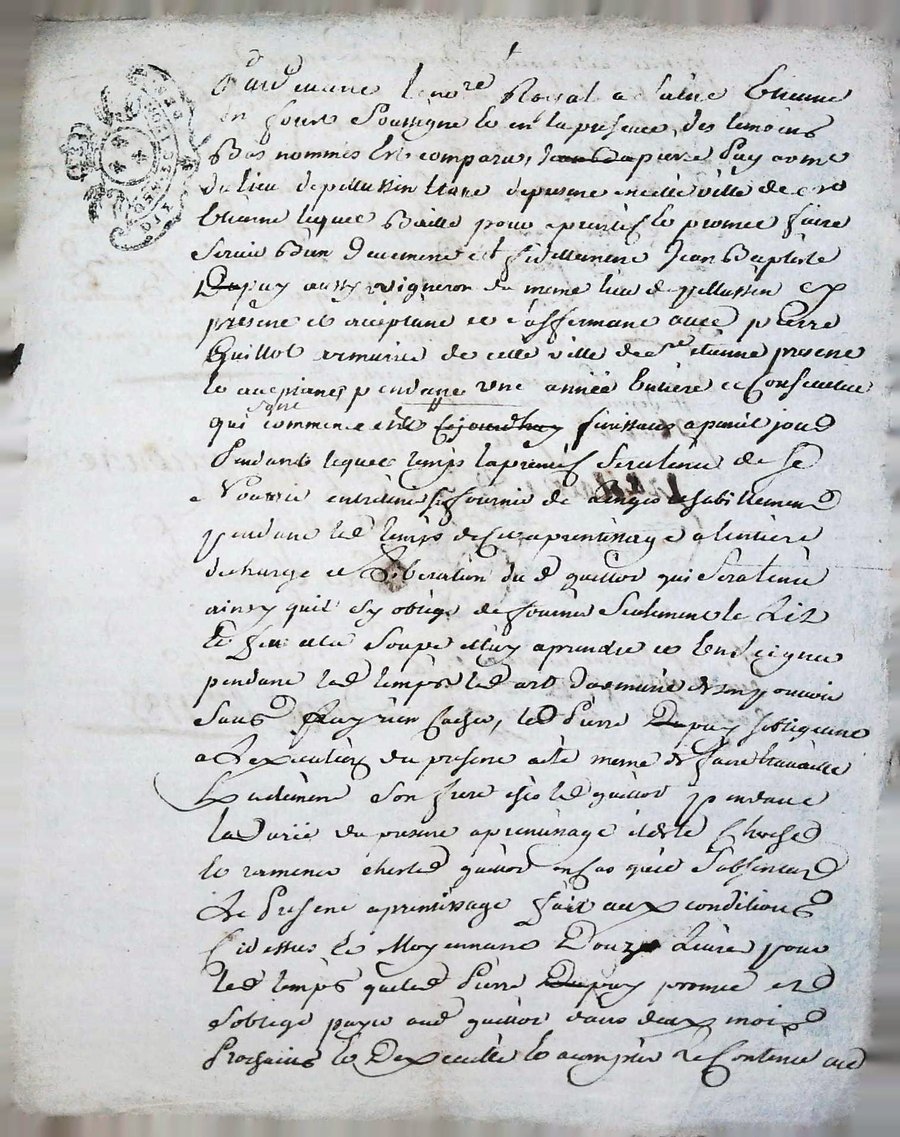 Pardevant le no.re Royal a Saint Etienne
en foret Soussigné et en la presence des temoins
Bas nommés Est comparu, Jean Ba pierre Puy
du lieu de pellussin Etant de present en cette ville de
Etienne lequel Baille pour aprentif et promet faire
Servir Bien Duement et fidellement Jean Baptiste
Dupuy aussy vigneron du meme lieu de pellussin
present et aceptant et s'affermant avec pierre
Guillot armurier de cette ville de St etienne present
et aceptant, pendant une année Entière et Consecutive
qui commence cejourdhuy finissant a pareil jour
Pendant lequel temps laprentif Sera tenu de Se
Nourrir entretenir se fournir de linges et habillement
pendant led temps de Son aprentissage a lentière
decharge et Liberation du d guillot qui Sera tenu
ainsy quil sy oblige de fournir Seulement le Lit
le feu et la Soupe et luy aprendre et Enseigner
pendant led temps led art Darmurier de Son pouvoir
Sans luy rien Cacher, led Pierre Dupuy sobligeant
a Lexecution du present acte meme de faire travailler
Son frere ches led guillot pendant
la Durée du present aprentissage et de le Chercher
et ramener ches led guillot en cas quil Sabsentat
Le Present aprentissage fait aux conditions
Cidessus et Moyennant Douze Livres pour
led temps que led Pierre Dupuy promet et
soblige payer aud guillot dans deux mois
Prochains et Dexecuter et acomplir le Contenu
DIX DENIERS